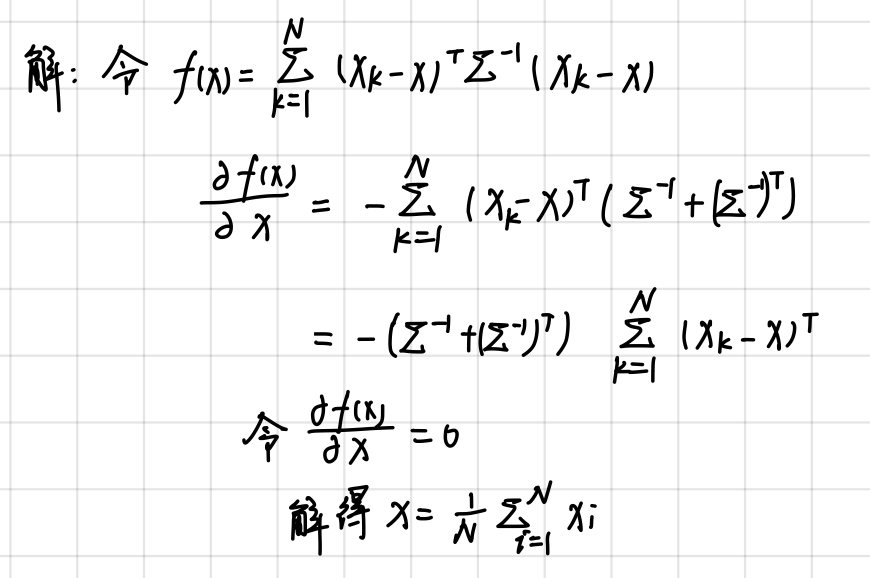 解: 令 f(x) = ∑_{k=1}^{N} (x_k - x)^T Σ^{-1} (x_k - x)
∂f(x)/∂x = - ∑_{k=1}^{N} (x_k - x)^T (Σ^{-1} + (Σ^{-1})^T)
= - (Σ^{-1} + (Σ^{-1})^T) ∑_{k=1}^{N} (x_k - x)^T
令 ∂f(x)/∂x = 0
解得 x = 1/N ∑_{i=1}^{N} x_i